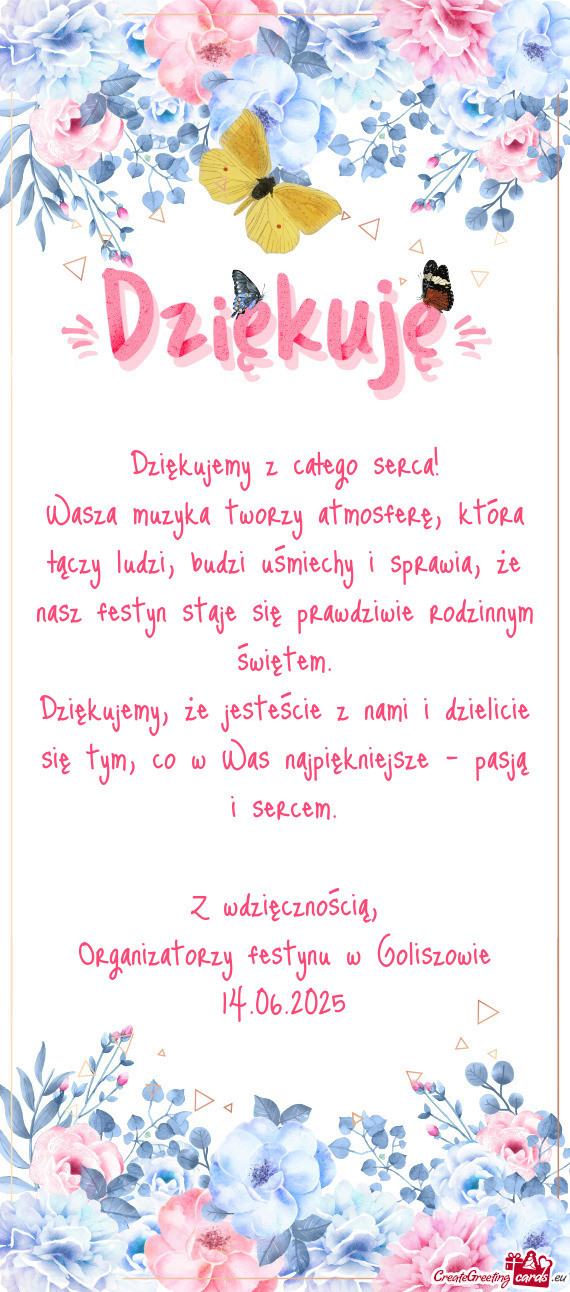 Dziękuję
Dziękujemy z całego serca!
Wasza muzyka tworzy atmosferę, która
łączy ludzi, budzi uśmiechy i sprawia, że
nasz festyn staje się prawdziwie rodzinnym
świętem.
Dziękujemy, że jesteście z nami i dzielicie
się tym, co w Was najpiękniejsze - pasją
i sercem.
Z wdzięcznością,
Organizatorzy festynu w Goliszowie
14.06.2025
CreateGreeting cards .eu